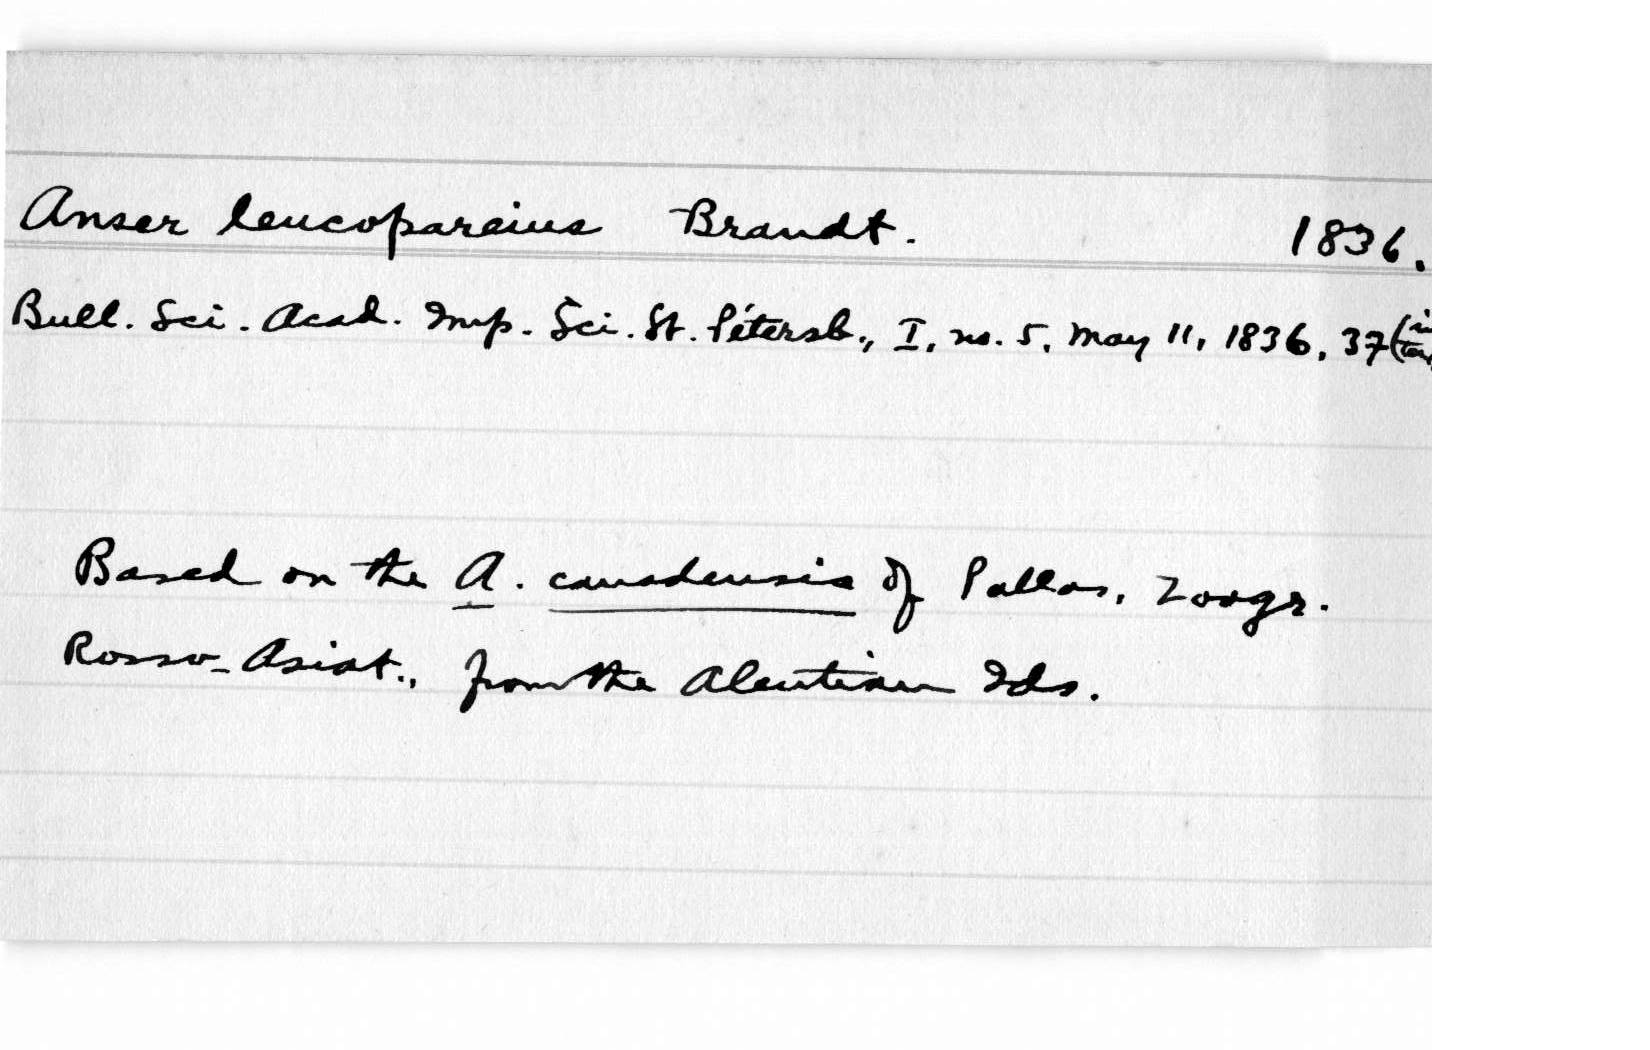 Anser leucopareius Brandt. 1836.
Bull. Sci. Acad. Imp. Sci. St. Pétersb., I, no. 5, May 11, 1836, 37 (in
Based on the A. canadensis of Pallas, Zoogr.
Rosso-Asiat., from the Aleutian Ids.